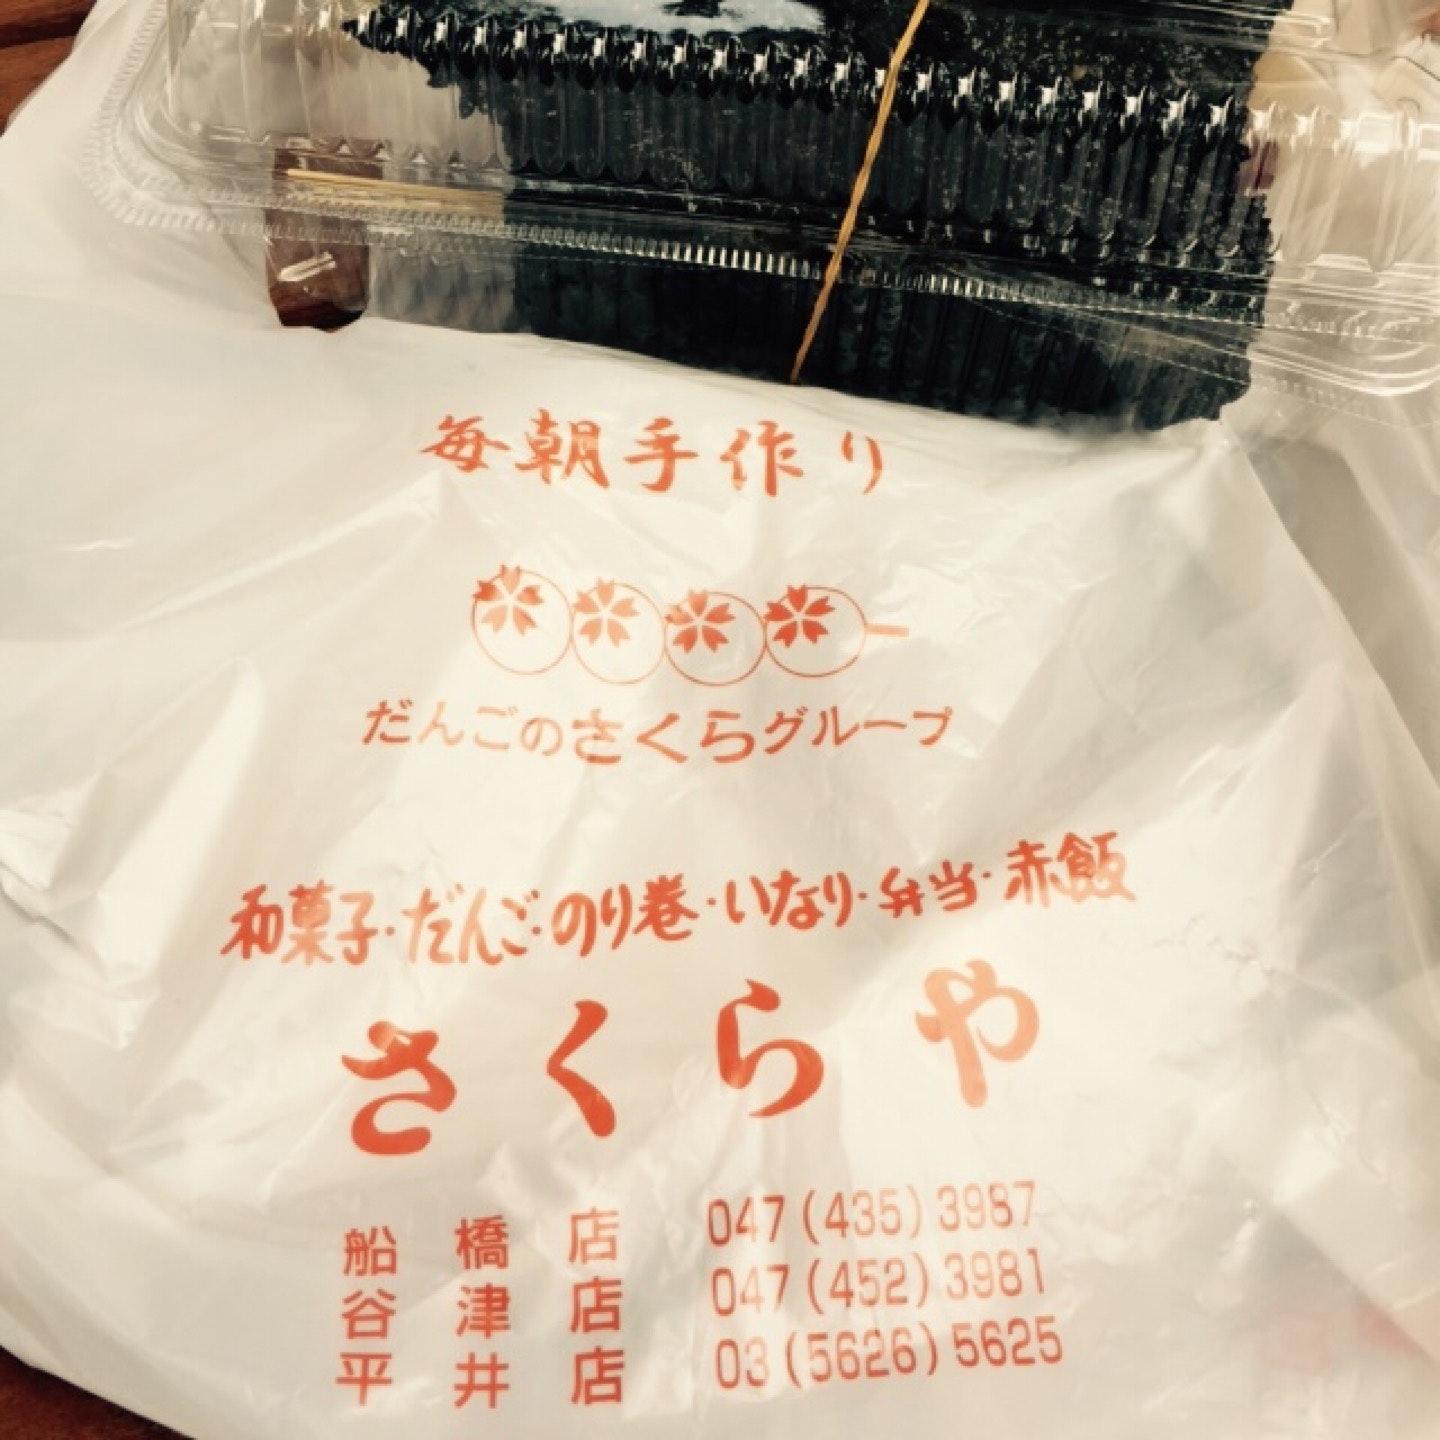 毎朝手作り
だんごのさくらグループ
和菓子・だんご・のり巻・いなり・弁当・赤飯
さくらや
船橋店 047(435)3987
谷津店 047(452)3981
平井店 03(5626)5625